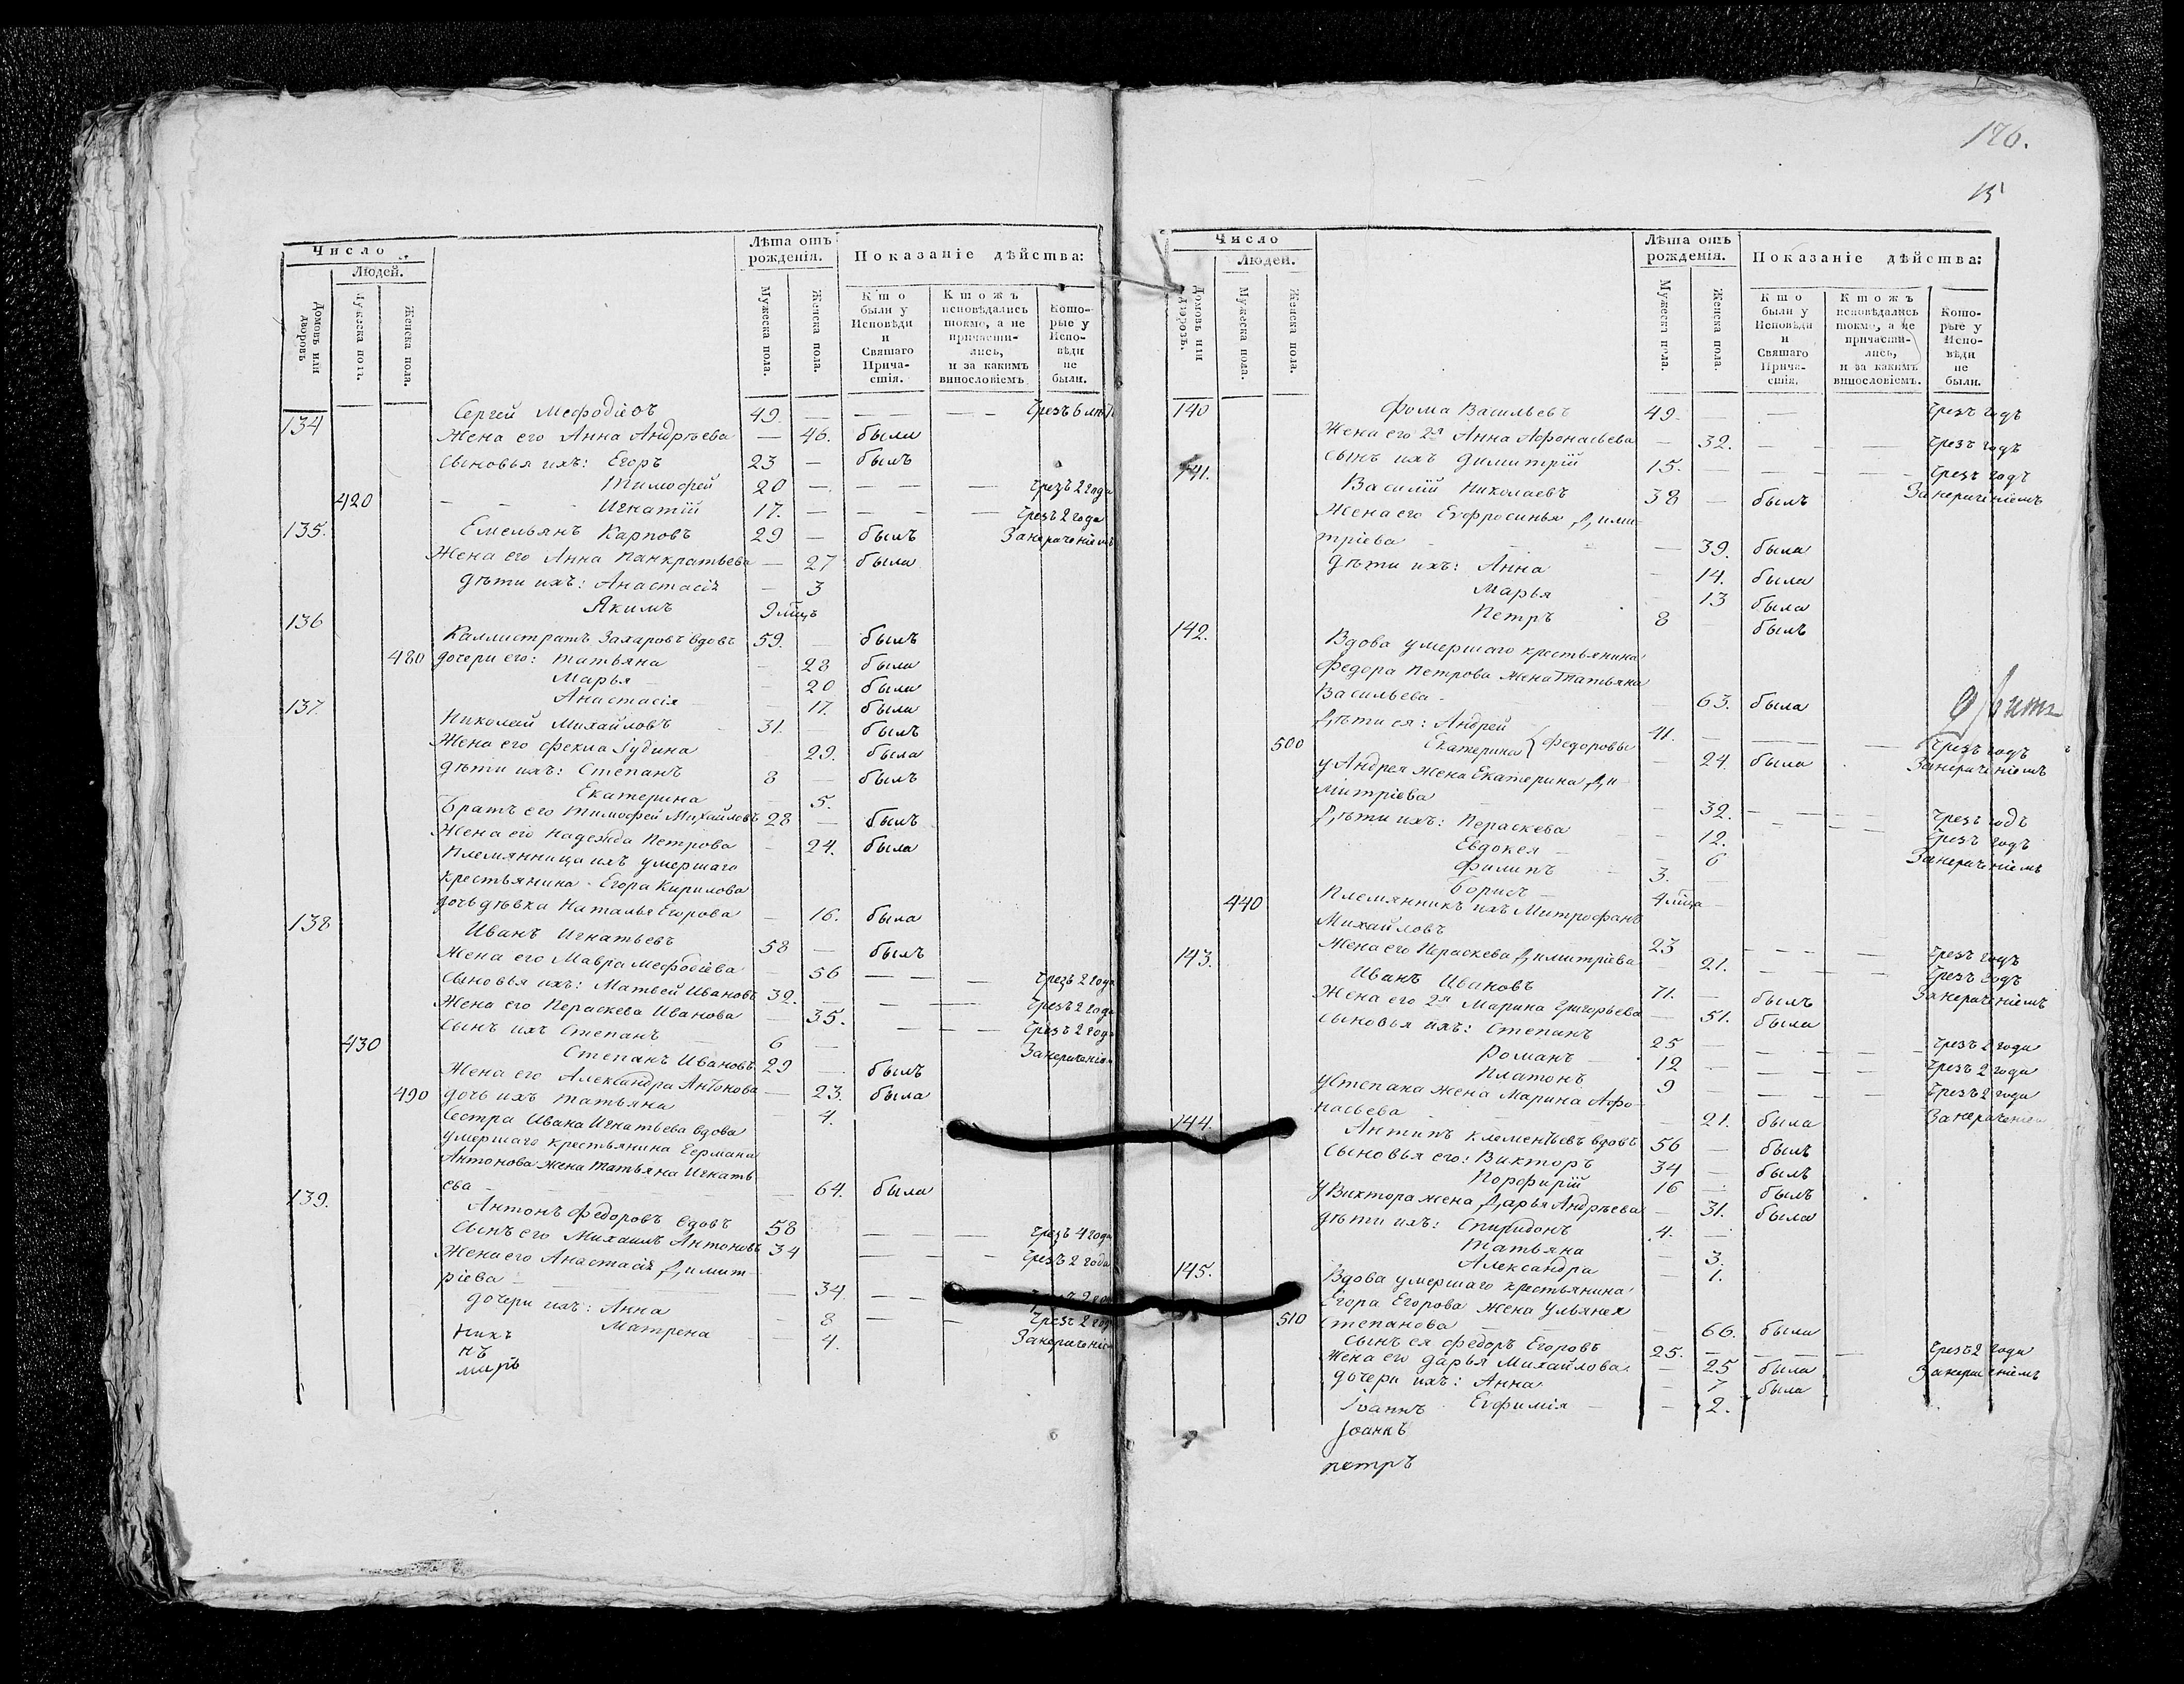 Число
Людей.
Домовъ или дворовъ
Мужеска пола.
Женска пола.
Лѣта отъ рожденія.
Мужеска пола.
Женска пола.
Показаніе дѣйства:
Кто были у Исповѣди и Святаго Прича- стія.
Ктожъ исповѣдались токмо, а не причасти- лись, и за какимъ винословіемъ
Кото- рые у Испо- вѣди не были.
134 Сергей Мефодіевъ 49 — — — — —
Жена его Анна Андрѣева — 46. была
сыновья ихъ: Егоръ 23 — былъ
Тимофей 20 — — — — чрезъ 2 года
420 — — Игнатій 17. — — — — чрезъ 2 года
135. Емельянъ Карповъ 29 — былъ
Жена его Анна Панкратьева — 27 была
дѣти ихъ: Анастасія — 3
Якимъ 9 мцъ
136 Каллистратъ Захаровъ вдовъ 59. былъ
480 дочери его: Татьяна — 28 была
Марья — — 20 была
Анастасія — 17. была
137. Николай Михайловъ 31. былъ
Жена его Фекла Іудина 29. была
дѣти ихъ: Степанъ 8 — былъ
Екатерина — 5.
Братъ его Тимофей Михайловъ 28 — былъ
Жена его Надежда Петрова — 24. была
Племянница ихъ умершаго
крестьянина Егора Кирилова
дочь дѣвка Наталья Егорова — 16. была
138 Иванъ Игнатьевъ 58 — былъ
Жена его Мавра Мефодіева — 56 — — — чрезъ 2 года
сыновья ихъ: Матвей Ивановъ 32. — — — чрезъ 2 года
Жена его Пераскева Иванова — 35. — — — чрезъ 2 года
сынъ ихъ Степанъ — 6 —
430 Степанъ Ивановъ 29 — былъ
Жена его Александра Антонова — 23. была
490 дочь ихъ Татьяна — 4.
сестра Ивана Игнатьева вдова
умершаго крестьянина Ермана
Антонова жена Татьяна Игнать
ева — — 64. была
139. Антонъ Федоровъ вдовъ 58 — — — чрезъ 4 года
сынъ его Михаилъ Антоновъ 34 — — — чрезъ 2 года
Жена его Анастасія Димит-
ріева — — 34 — —
дочери ихъ: Анна — 8 — —
Матрена — 4.
нъ
миръ
176.
15
Число
Людей.
Домовъ или дворовъ.
Мужеска пола.
Женска пола.
Лѣта отъ рожденія.
Мужеска пола.
Женска пола.
Показаніе дѣйства:
Кто были у Исповѣди и Святаго Прича- стія.
Ктожъ исповѣдались токмо, а не причасти- лись, и за какимъ винословіемъ.
Кото- рые у Испо- вѣди не были.
140 Фома Васильевъ 49 — чрезъ годъ
Жена его 2я Анна Афонасьева — 32. — — — чрезъ годъ
сынъ ихъ Димитрій 15. — — — — чрезъ годъ
141. Василій Николаевъ 38 — былъ
Жена его Евфросинья Дими-
тріева — — 39. была
дѣти ихъ: Анна — 14. была
Марья — 13 была
Петръ 8 — былъ
142. Вдова умершаго крестьянина
Федора Петрова жена Татьяна
Васильева — — 63. была
Дѣти ея: Андрей 41. — — — чрезъ годъ
500 Екатерина } Федоровы — 24 была
у Андрея жена Екатерина Ди-
митріева — — 32. — — — чрезъ годъ
Дѣти ихъ: Пераскева — 12. — — — чрезъ годъ
Евдокея — — 6
Филипъ 3. —
Борисъ — 4 мца —
440 Племянникъ ихъ Митрофанъ
Михайловъ 23 — — — чрезъ годъ
Жена его Пераскева Димитріева — 21. — — — чрезъ годъ
143. Иванъ Ивановъ 71. — былъ
Жена его 2я Марина Григорьева — 51. была
сыновья ихъ: Степанъ 25 — — — — чрезъ 2 года
Романъ — 12 — — — — чрезъ 2 года
Платонъ 9 — — — — чрезъ 2 года
у Степана жена Марина Афо-
насьева — — 21. была
144. Антипъ Клементьевъ вдовъ 56 — былъ
сыновья его: Викторъ 34 — былъ
Порфирій 16 — былъ
у Виктора жена Дарья Андрѣева — 31. была
дѣти ихъ: Спиридонъ 4. —
Татьяна — 3.
Александра — 1.
145. Вдова умершаго крестьянина
Егора Егорова жена Ульянея
510 Степанова — — 66. была
сынъ ея Федоръ Егоровъ 25. — — — чрезъ 2 года
Жена его Дарья Михайлова — 25 была
дочери ихъ: Анна — 7 была
Евфимія — — 2.
Іоаннъ
Іоаннъ
Петръ